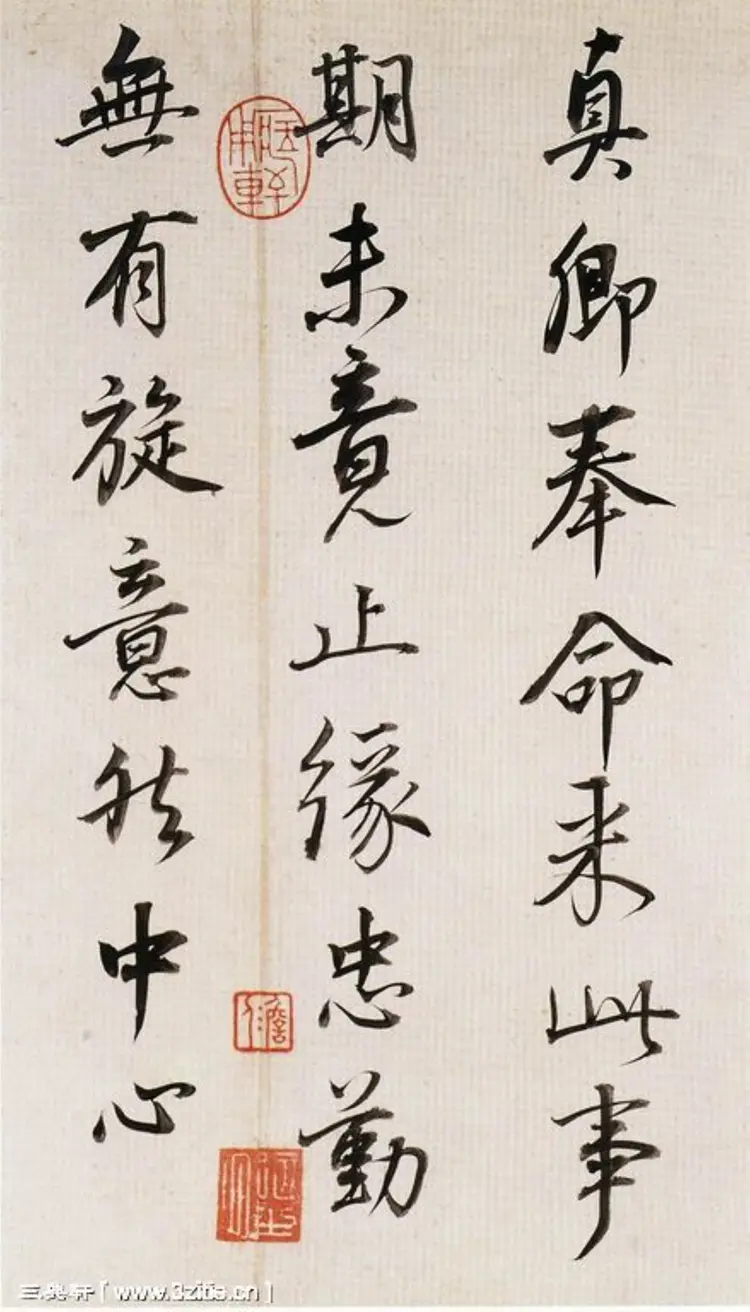 真卿奉命来此事
期未竟止緣忠勤
無有旋意然中心
三典轩[www.3zitie.cn]